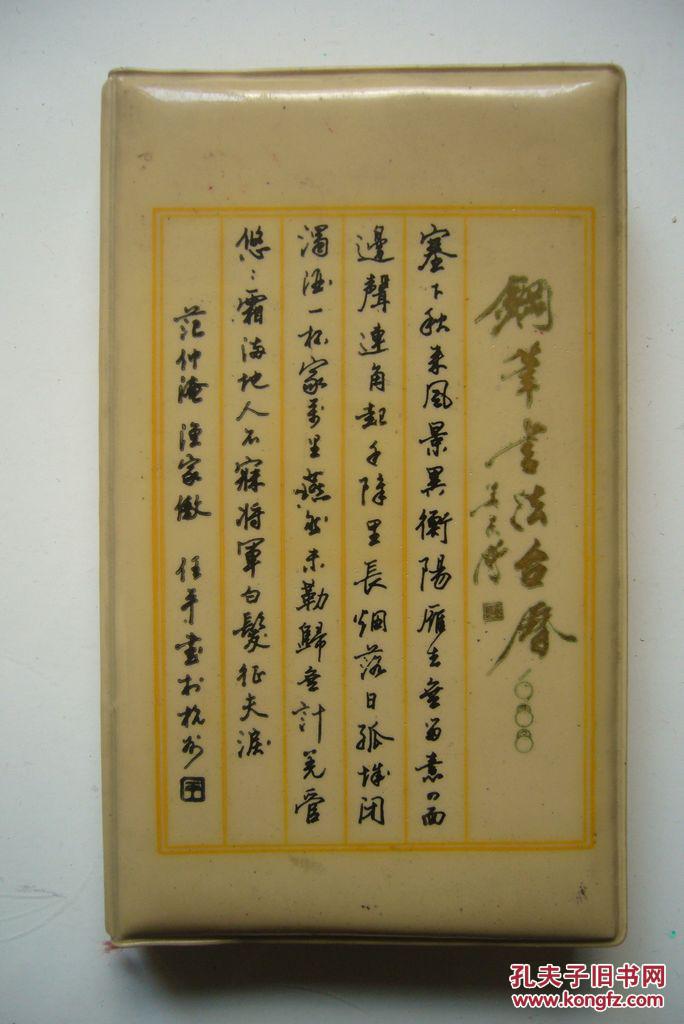 鋼筆书法台曆
姜东舒
塞下秋来風景異衡陽雁去無留意四面
邊聲連角起千障里長烟落日孤城闭
濁酒一杯家萬里燕然未勒歸無計羌管
悠悠霜满地人不寐将軍白髮征夫淚
范仲淹 渔家傲 任平書於杭州
孔夫子旧书网
www.kongfz.com